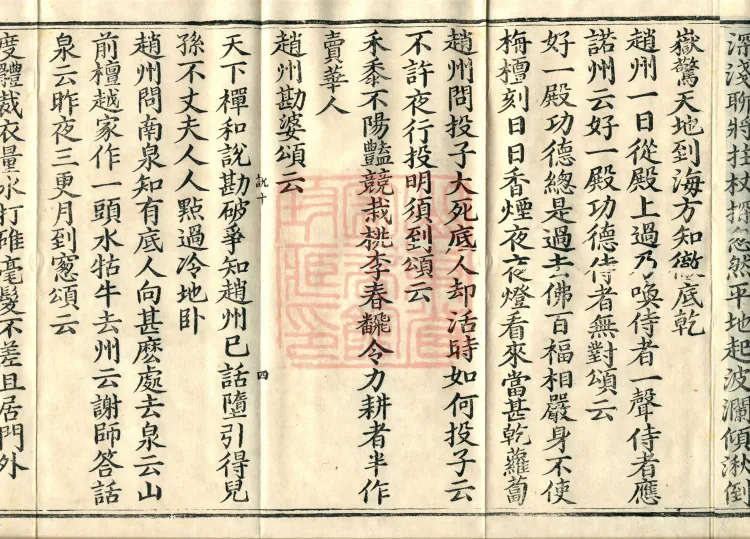 深淺聊將拄杖探忽然平地起波瀾傾湫倒
嶽驚天地到海方知徹底乾
趙州一日從殿上過乃喚侍者一聲侍者應
諾州云好一殿功德侍者無對頌云
好一殿功德總是過去佛百福相嚴身不使
栴檀刻日日香煙夜夜燈看來當甚乾蘿蔔
趙州問投子大死底人却活時如何投子云
不許夜行投明須到頌云
禾黍不陽豔競栽桃李春翻令力耕者半作
賣華人
趙州勘婆頌云
說十 四
天下禪和說勘破爭知趙州已話墮引得兒
孫不丈夫人人點過冷地臥
趙州問南泉知有底人向甚麽處去泉云山
前檀越家作一頭水牯牛去州云謝師答話
泉云昨夜三更月到窻頌云
度體裁衣量水打碓毫髮不差且居門外